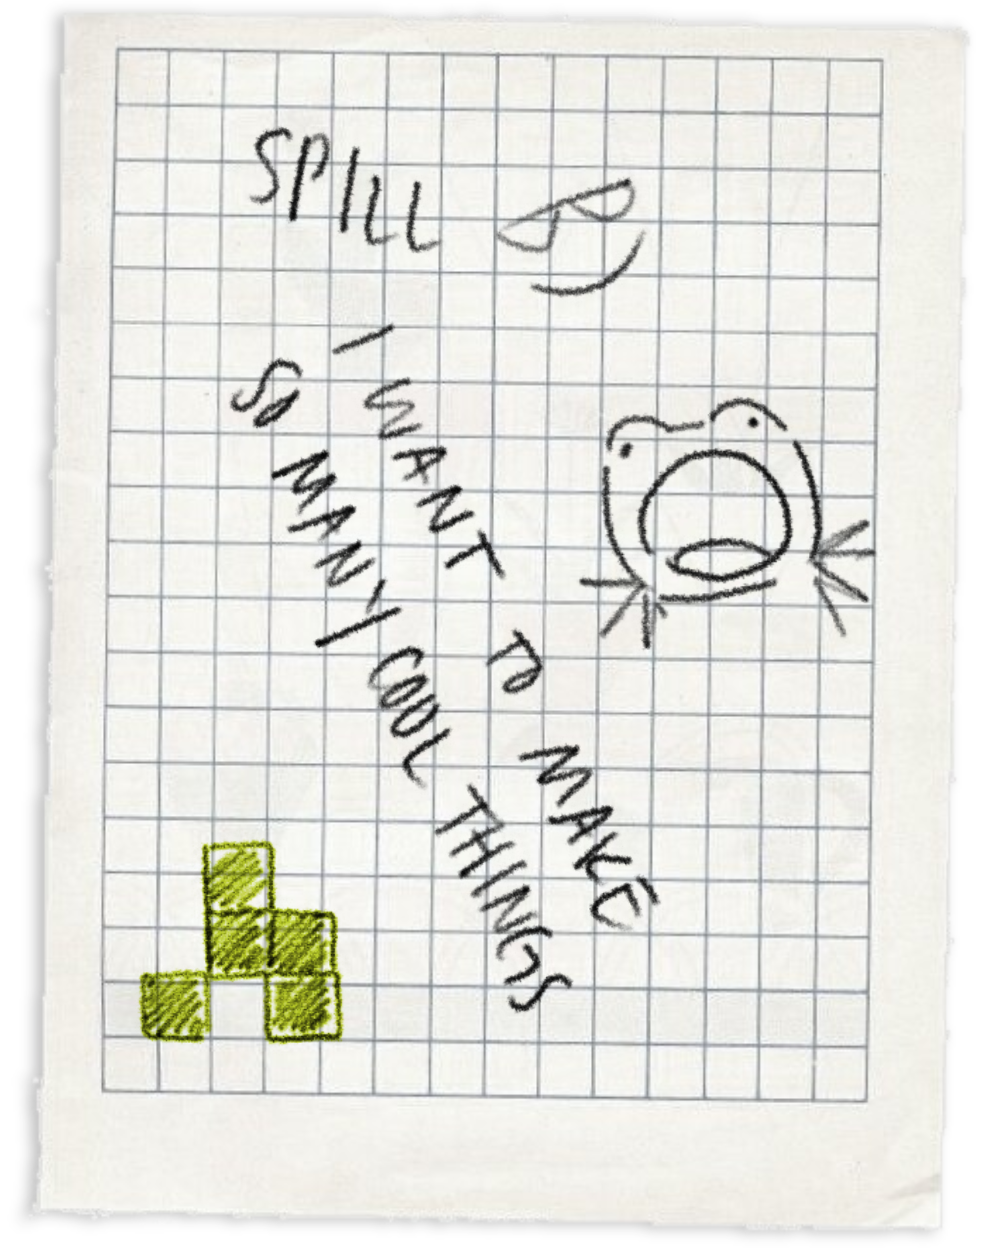 SPILL
I WANT TO MAKE
SO MANY COOL THINGS